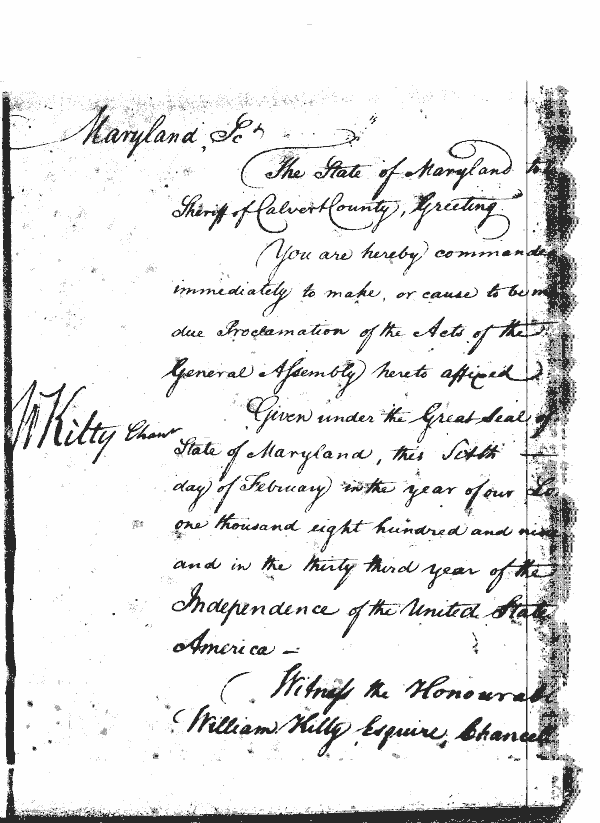 Maryland, Sct
The State of Maryland to
Sheriff of Calvert County, Greeting
You are hereby commande
immediately to make, or cause to be m
due Proclamation of the Acts of the
General Assembly hereto affixed
Given under the Great Seal of
W Kilty Chanr
State of Maryland, this Sixth
day of February in the year of our Lo
one thousand eight hundred and nine
and in the thirty third year of the
Independence of the United State
America —
Witness the Honourabl
William Kilty Esquire, Chancell